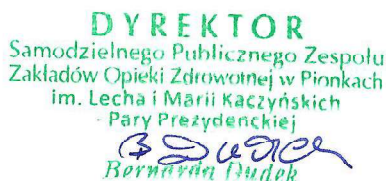 DYREKTOR
Samodzielnego Publicznego Zespołu
Zakładów Opieki Zdrowotnej w Pionkach
im. Lecha i Marii Kaczyńskich
Pary Prezydenckiej
B Dudek
Bernarda Dudek